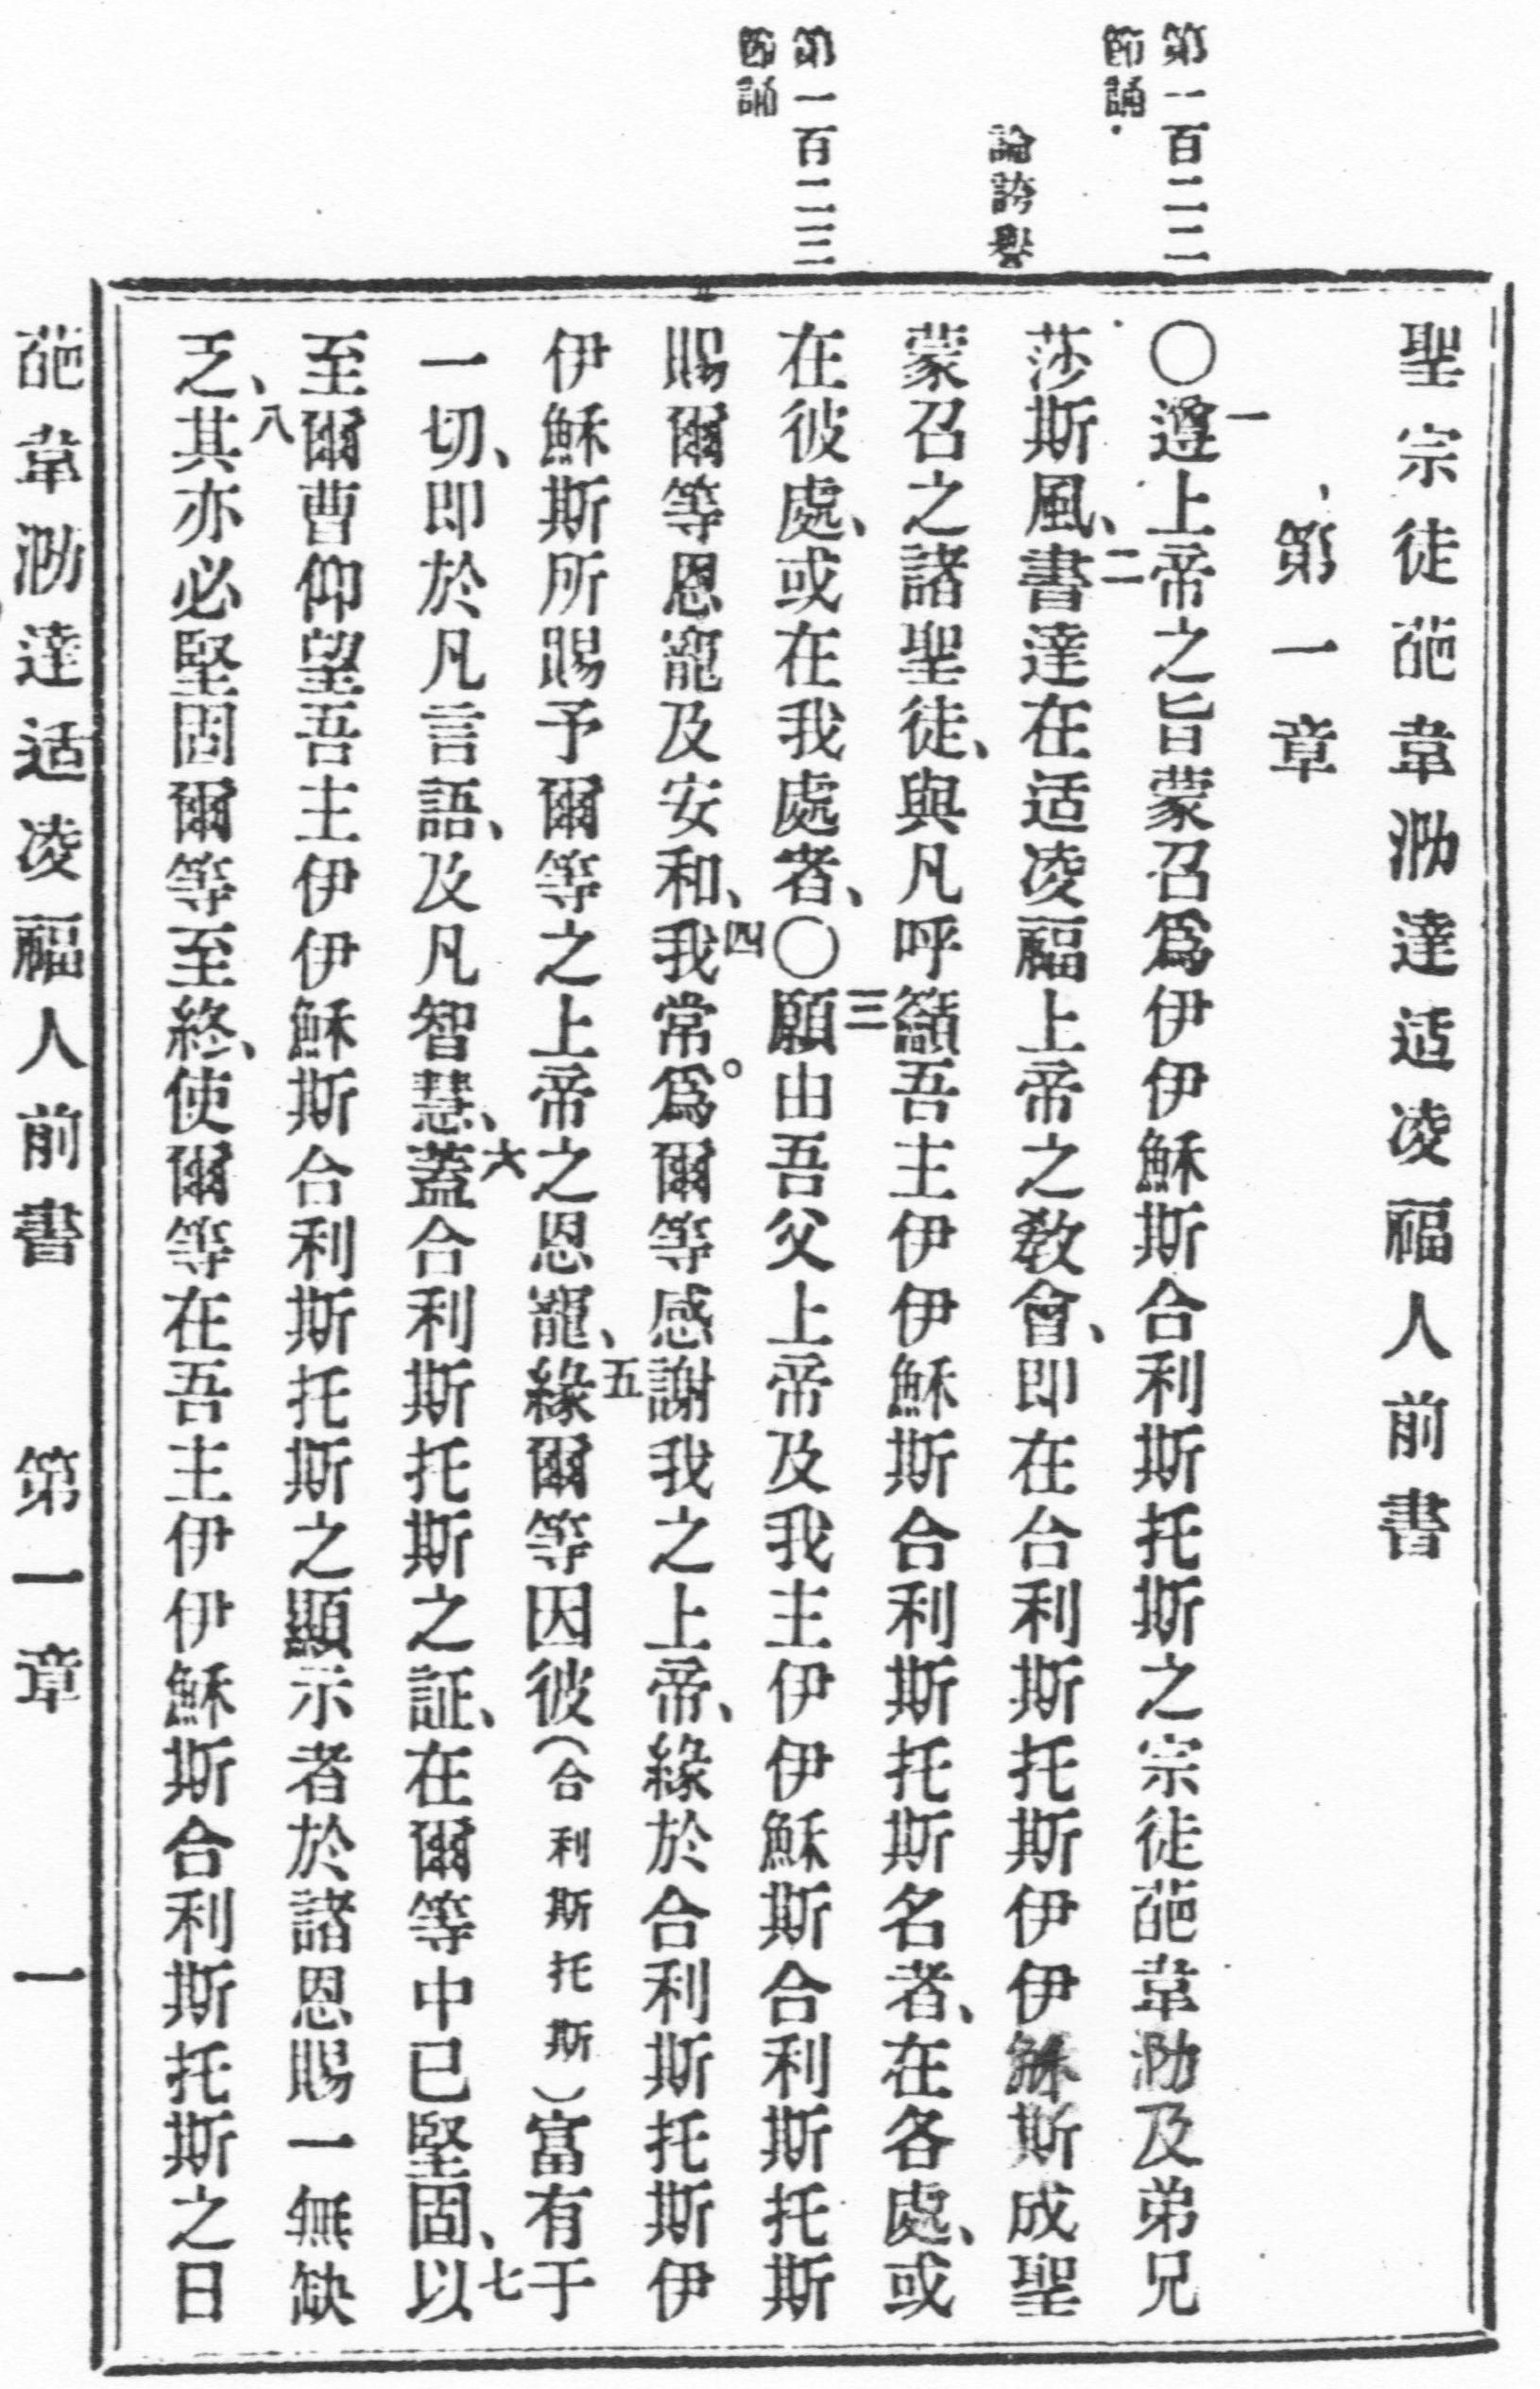 第一百二二
節誦
論誇譽
第一百二三
節誦
聖宗徒葩韋泐達适凌福人前書
第一章
〇一遵上帝之旨蒙召爲伊伊穌斯合利斯托斯之宗徒葩韋泐及弟兄
莎斯風、二書達在适凌福上帝之教會、即在合利斯托斯伊伊穌斯成聖
蒙召之諸聖徒、與凡呼籲吾主伊伊穌斯合利斯托斯名者、在各處、或
在彼處、或在我處者、〇三願由吾父上帝及我主伊伊穌斯合利斯托斯
賜爾等恩寵及安和、四我常爲爾等感謝我之上帝、緣於合利斯托斯伊
伊穌斯所賜予爾等之上帝之恩寵、五緣爾等因彼（合利斯托斯）富有于
一切、即於凡言語、及凡智慧、六蓋合利斯托斯之証、在爾等中已堅固、七以
至爾曹仰望吾主伊伊穌斯合利斯托斯之顯示者於諸恩賜一無缺
乏、八其亦必堅固爾等至終、使爾等在吾主伊伊穌斯合利斯托斯之日
葩韋泐達适凌福人前書 第一章 一